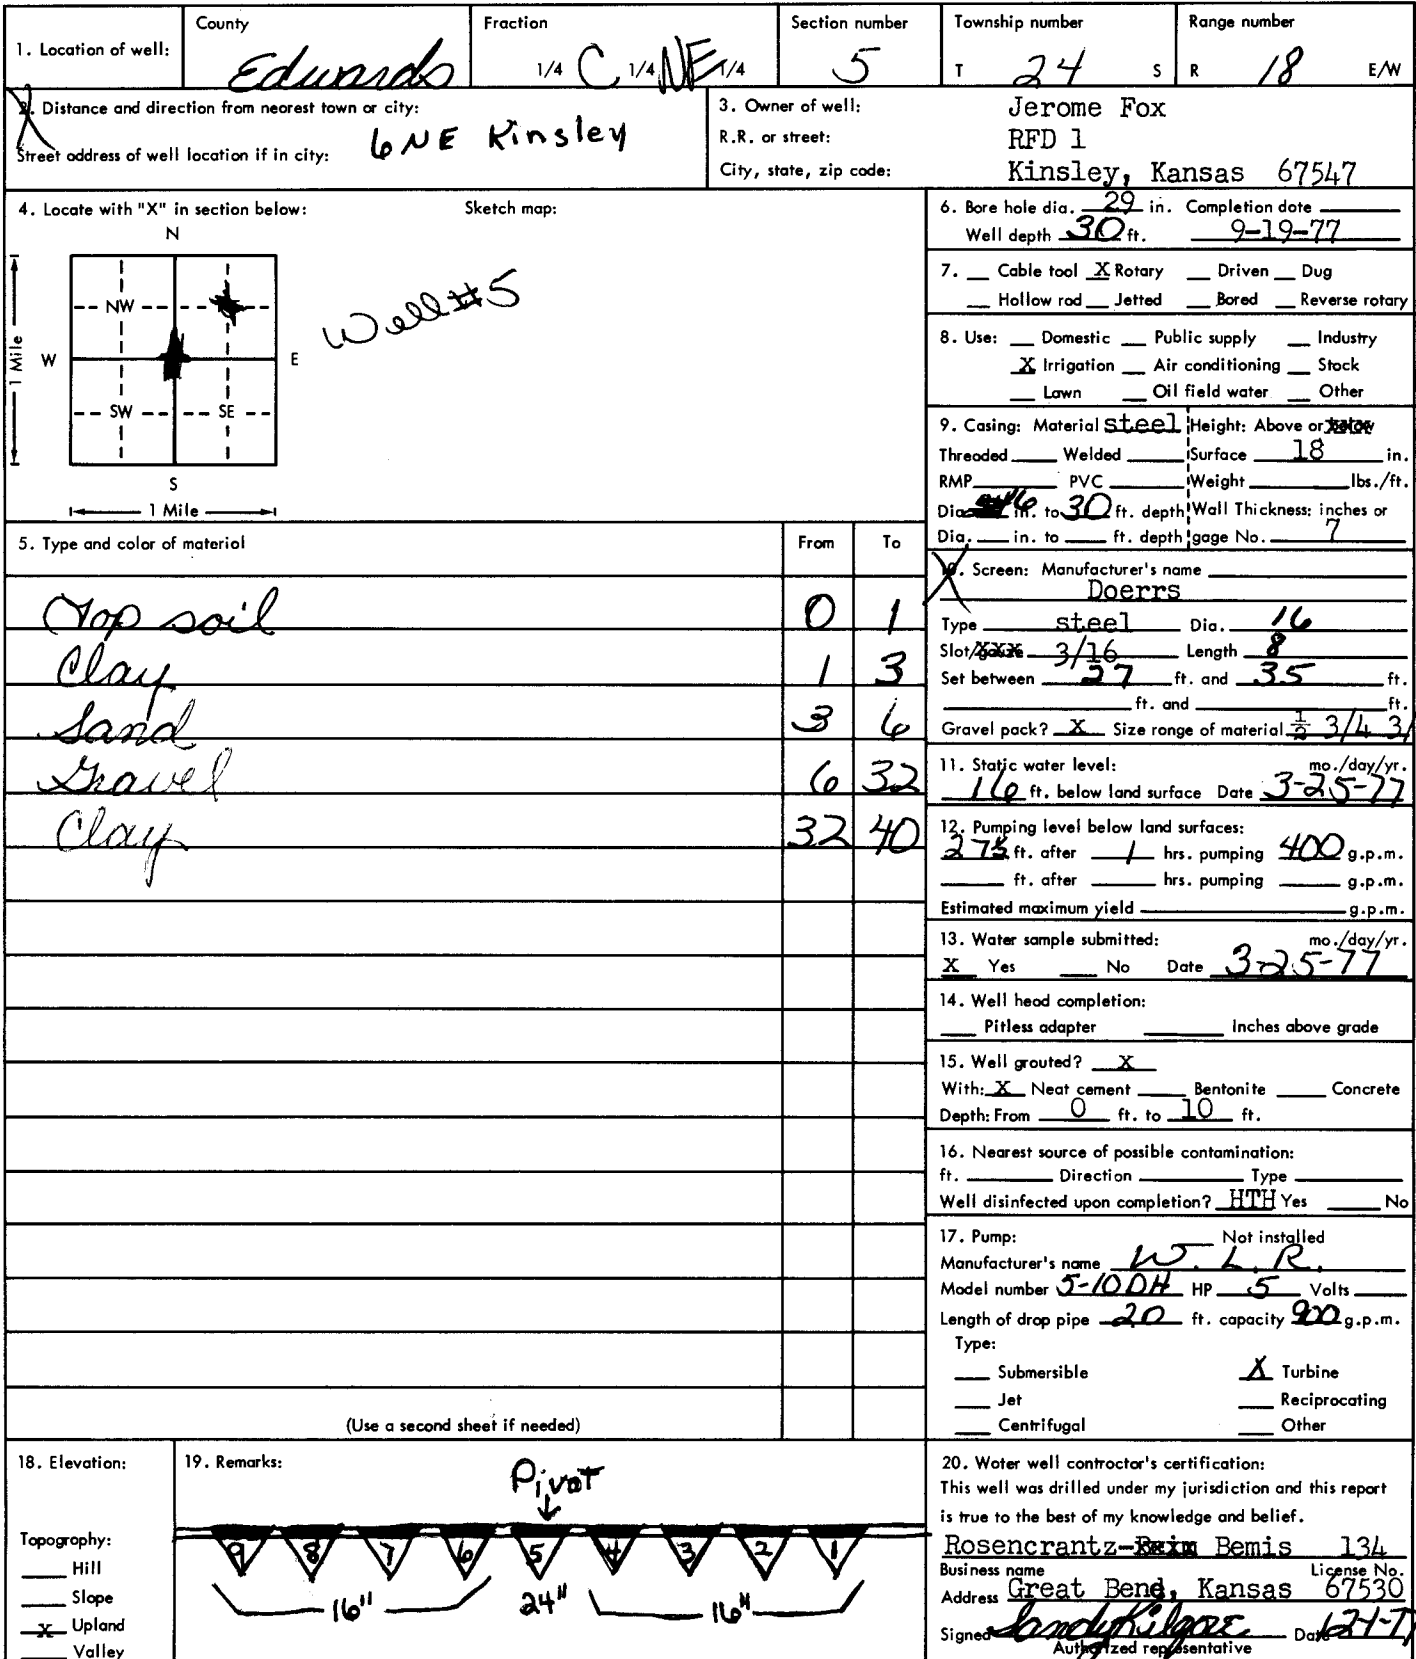 1. Location of well:
County
Edwards
Fraction
1/4 C 1/4 NE 1/4
Section number
5
Township number
T 24 S
Range number
R 18 E/W
2. Distance and direction from nearest town or city:
6 NE Kinsley
Street address of well location if in city:
3. Owner of well: Jerome Fox
R.R. or street: RFD 1
City, state, zip code: Kinsley, Kansas 67547
4. Locate with "X" in section below: Sketch map:
N
NW
W E
SW SE
S
1 Mile
1 Mile
Well #5
5. Type and color of material From To
Top soil 0 1
Clay 1 3
Sand 3 6
Gravel 6 32
Clay 32 40
(Use a second sheet if needed)
6. Bore hole dia. 29 in. Completion date
Well depth 30 ft. 9-19-77
7. Cable tool X Rotary Driven Dug
Hollow rod Jetted Bored Reverse rotary
8. Use: Domestic Public supply Industry
X Irrigation Air conditioning Stock
Lawn Oil field water Other
9. Casing: Material steel Height: Above or
Threaded Welded Surface 18 in.
RMP PVC Weight lbs./ft.
Dia. 16 in. to 30 ft. depth Wall Thickness: inches or
Dia. in. to ft. depth gage No. 7
10. Screen: Manufacturer's name
Doerrs
Type steel Dia. 16
Slot/ 3/16 Length 8
Set between 27 ft. and 35 ft.
ft. and ft.
Gravel pack? X Size range of material 1/2 3/4 3/
11. Static water level: mo./day/yr.
16 ft. below land surface Date 3-25-77
12. Pumping level below land surfaces:
ft. after 1 hrs. pumping 400 g.p.m.
ft. after hrs. pumping g.p.m.
Estimated maximum yield g.p.m.
13. Water sample submitted: mo./day/yr.
X Yes No Date 3-25-77
14. Well head completion:
Pitless adapter Inches above grade
15. Well grouted? X
With: X Neat cement Bentonite Concrete
Depth: From 0 ft. to 10 ft.
16. Nearest source of possible contamination:
ft. Direction Type
Well disinfected upon completion? HTH Yes No
17. Pump: Not installed
Manufacturer's name W. L. R.
Model number 5-10DH HP 5 Volts
Length of drop pipe 20 ft. capacity 900 g.p.m.
Type:
Submersible X Turbine
Jet Reciprocating
Centrifugal Other
18. Elevation:
Topography:
Hill
Slope
X Upland
Valley
19. Remarks:
Pivot
9 8 7 6 5 4 3 2 1
16" 24" 16"
20. Water well contractor's certification:
This well was drilled under my jurisdiction and this report
is true to the best of my knowledge and belief.
Rosencrantz- Bemis 134
Business name License No.
Address Great Bend, Kansas 67530
Signed Sandy Kilgore Date 12-1-77
Authorized representative